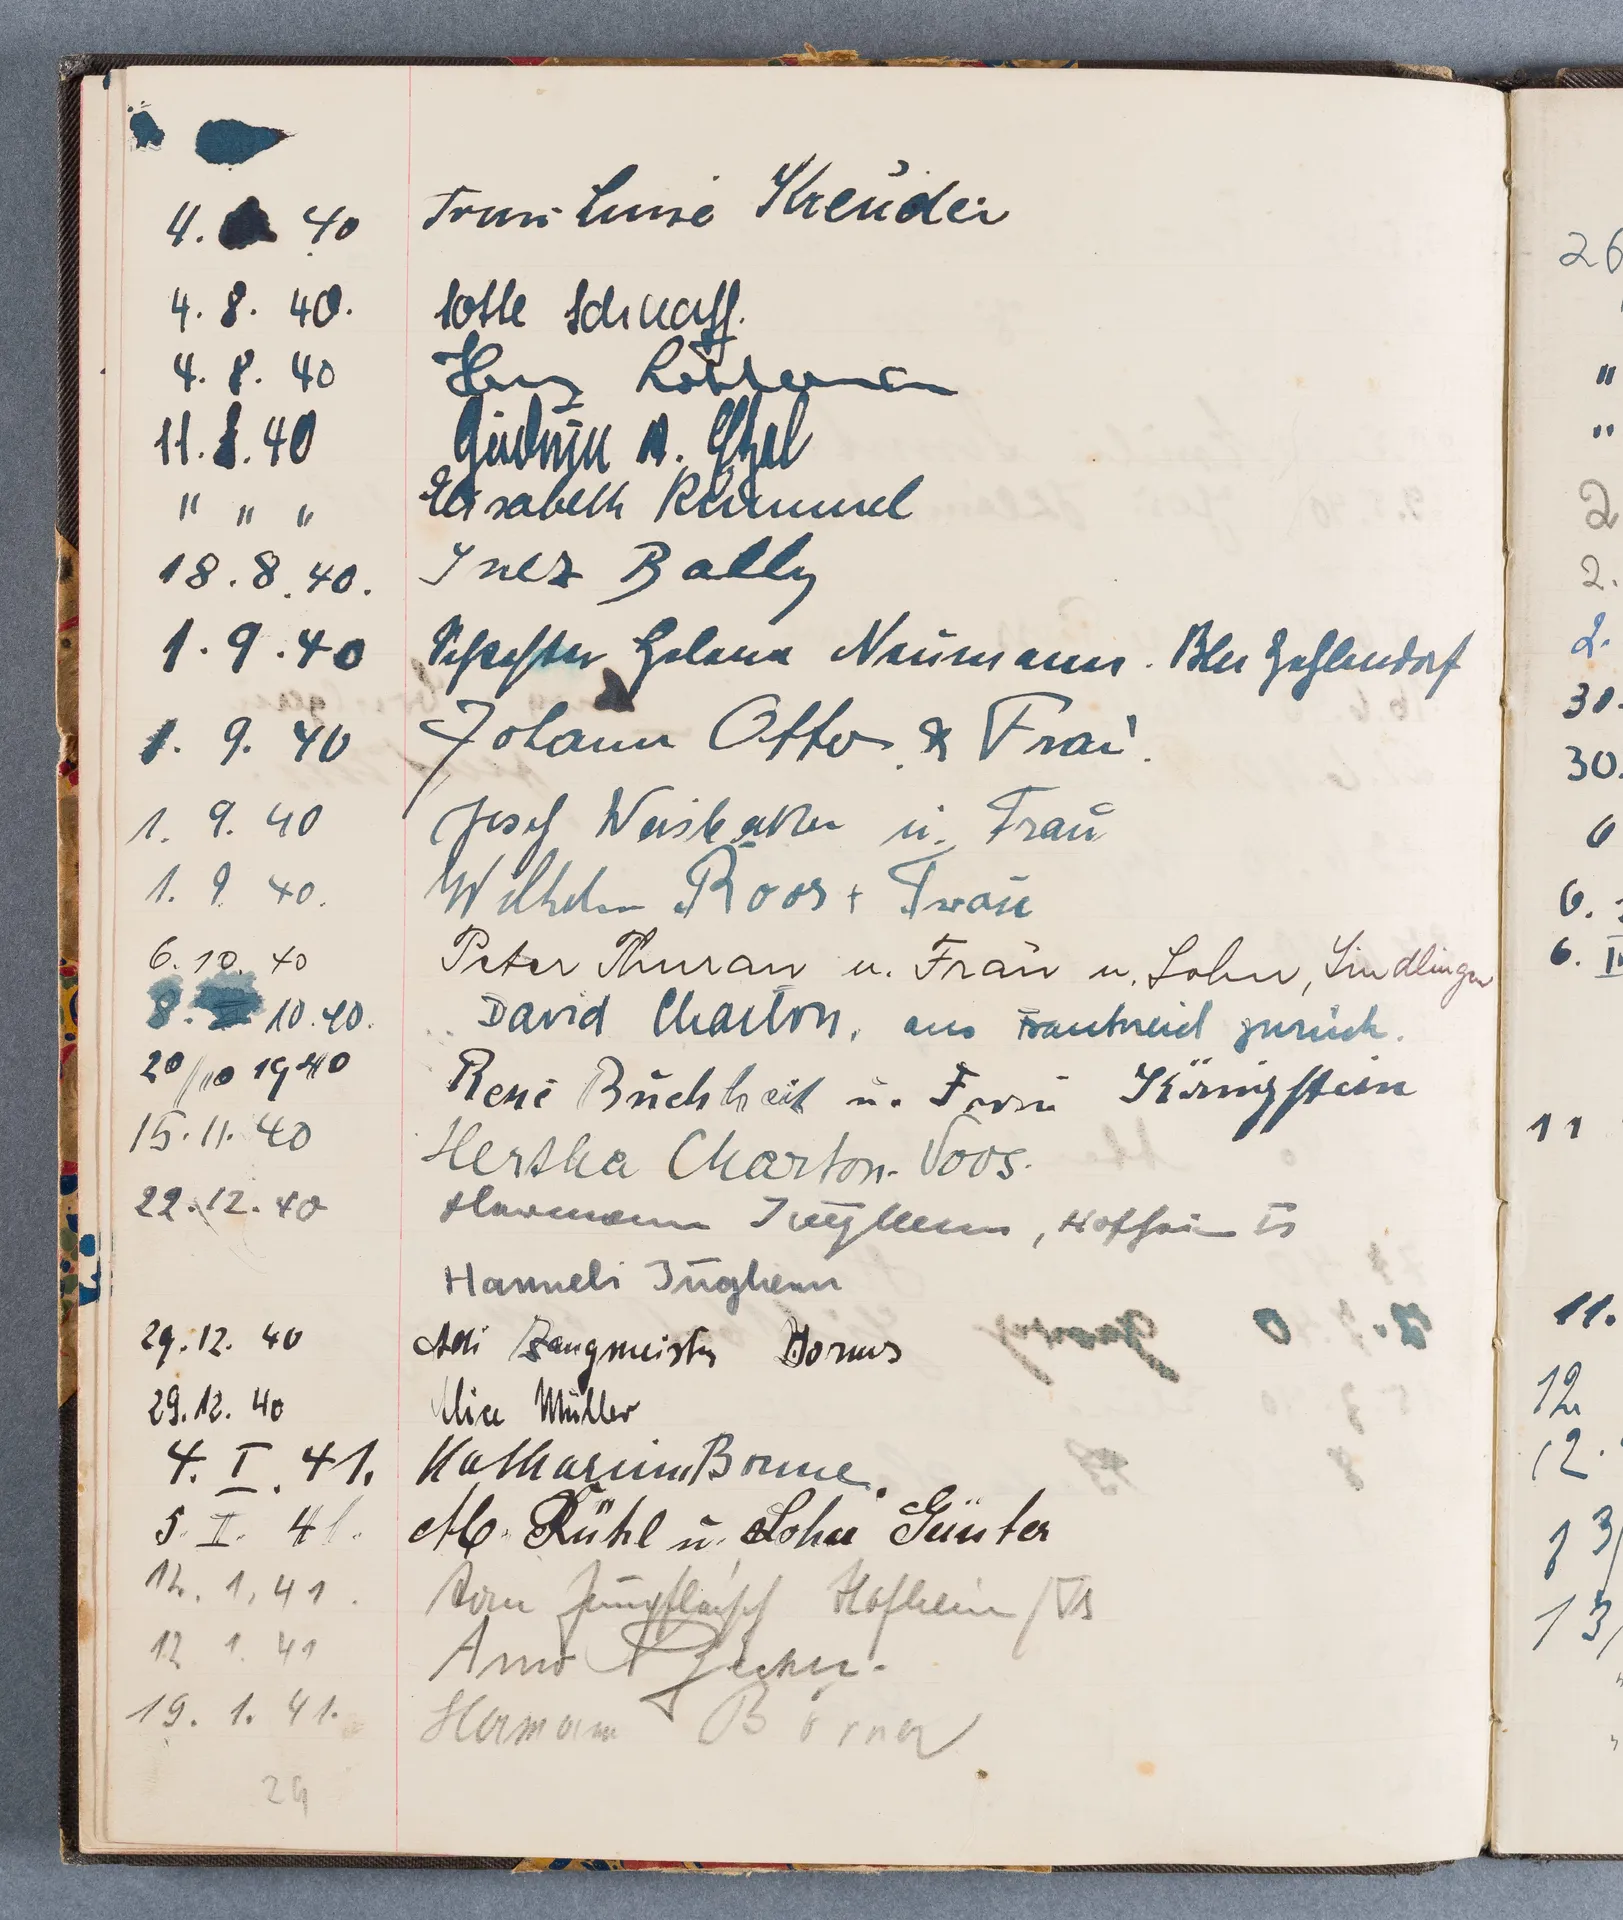 4. 40 Frau Luise Kreuder
4. 8. 40. Lotte Schnaff.
4. 8. 40 Lohmann
11. 8. 40 Gudrun v. Etzel
" " " Elisabeth Rummel
18. 8. 40. Inez Bally
1. 9. 40 Schwester Helene Neumann. Bln Zehlendorf
1. 9. 40 Johann Otto & Frau.
1. 9. 40 Josef u. Frau
1. 9. 40. Wilhelm Roos + Frau
6. 10. 40 Peter Thuran u. Frau u. Sohn, Sindlingen
8. 10. 40. David Charton, aus Frankreich zurück.
20/10 1940 René Buchheit u. Frau Königstein
15. 11. 40 Hertha Charton-Voos.
22. 12. 40 Hermann Jughenn, Hofheim Ts
Hanneli Jughenn
29. 12. 40 Adi Zangmeister Hornus
29. 12. 40 Alice Müller
4. I. 41. Katharina Bonne
5. II. 41. M. Rühl u. Sohn Günter
12. 1. 41. Jungfleisch Hofheim/Ts
12 1. 41 Arno
19. 1. 41. Hermann Börner
29
26
"
"
2
2.
2.
30.
30.
6
6.
6.
11
11.
12
12.
13/
13/